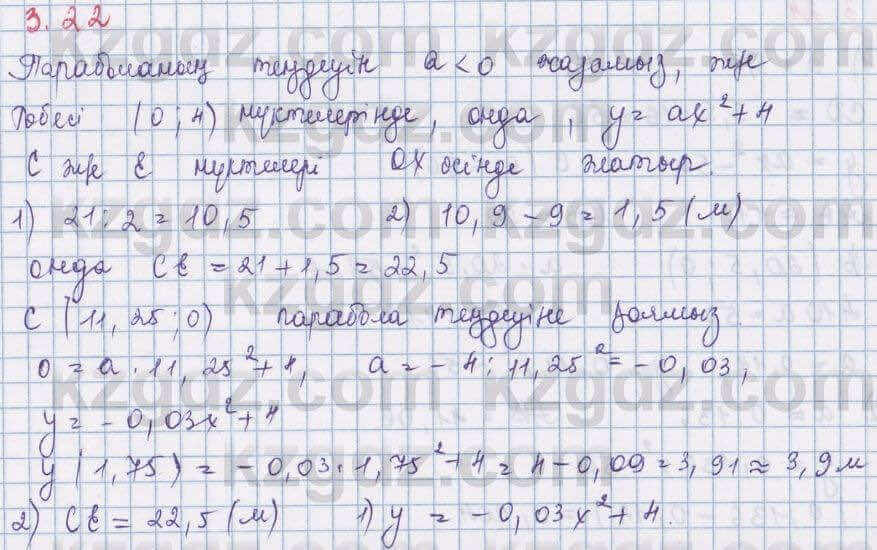 3.22
Параболаның теңдеуін a < 0 жазамыз, және
төбесі (0; 4) нүктелерінде, онда, y = ax² + 4
C және B нүктелері OX осінде жатыр.
1) 21 : 2 = 10,5 2) 10,9 - 9 = 1,5 (м)
онда CB = 21 + 1,5 = 22,5
C (11,25; 0) парабола теңдеуіне қоямыз.
0 = a · 11,25² + 4, a = - 4 : 11,25² = - 0,03,
y = - 0,03x² + 4
y (1,75) = - 0,03 · 1,75² + 4 = 4 - 0,09 = 3,91 ≈ 3,9 м
2) CB = 22,5 (м) 1) y = - 0,03x² + 4.
kzgdz.com